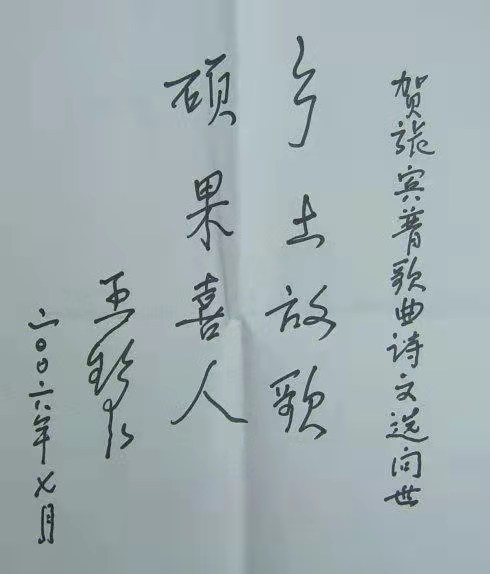 贺张宾普歌曲诗文选问世
乡土放歌
硕果喜人
王
二〇〇六年七月